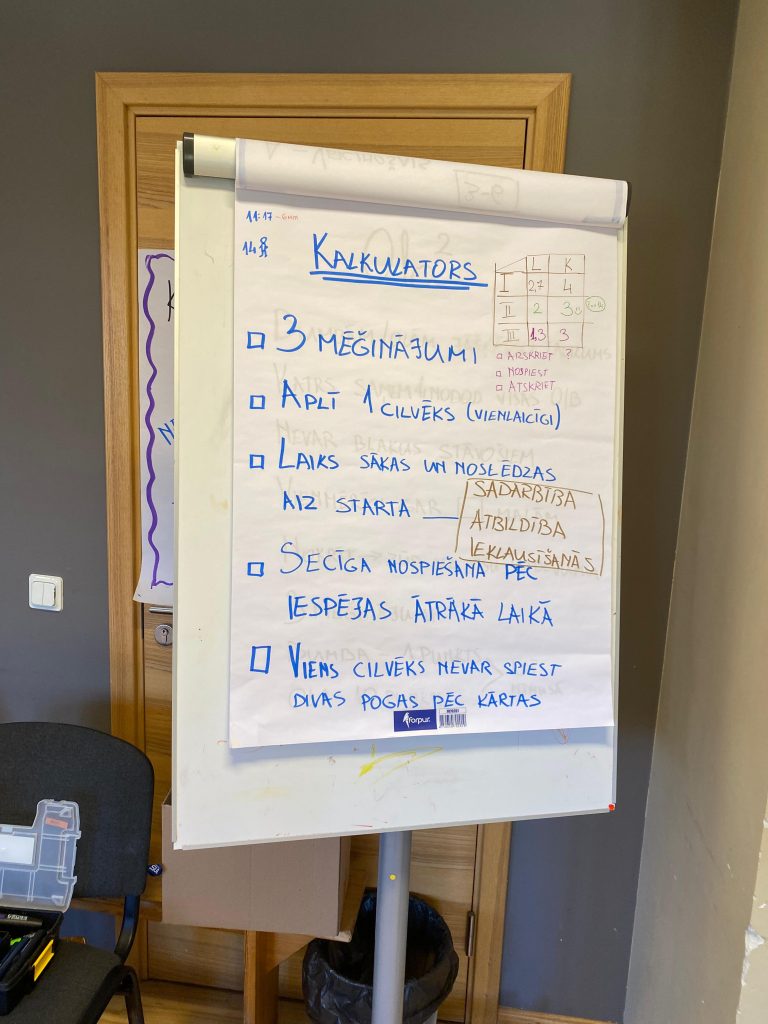 11:17 - 6 min
KALKULATORS
L K
I 2,7 4
II 2 3
III 1,3 3
□ AIZSKRIET ?
□ NOSPIEST
□ ATSKRIET
□ 3 MĒĢINĀJUMI
□ APLĪ 1 CILVĒKS (VIENLAICĪGI)
□ LAIKS SĀKAS UN NOSLĒDZAS
AIZ STARTA
SADARBĪBA
ATBILDĪBA
IEKLAUSĪŠANĀS
□ SECĪGA NOSPIEŠANA PĒC
IESPĒJAS ĀTRĀKĀ LAIKĀ
□ VIENS CILVĒKS NEVAR SPIEST
DIVAS POGAS PĒC KĀRTAS
forpus